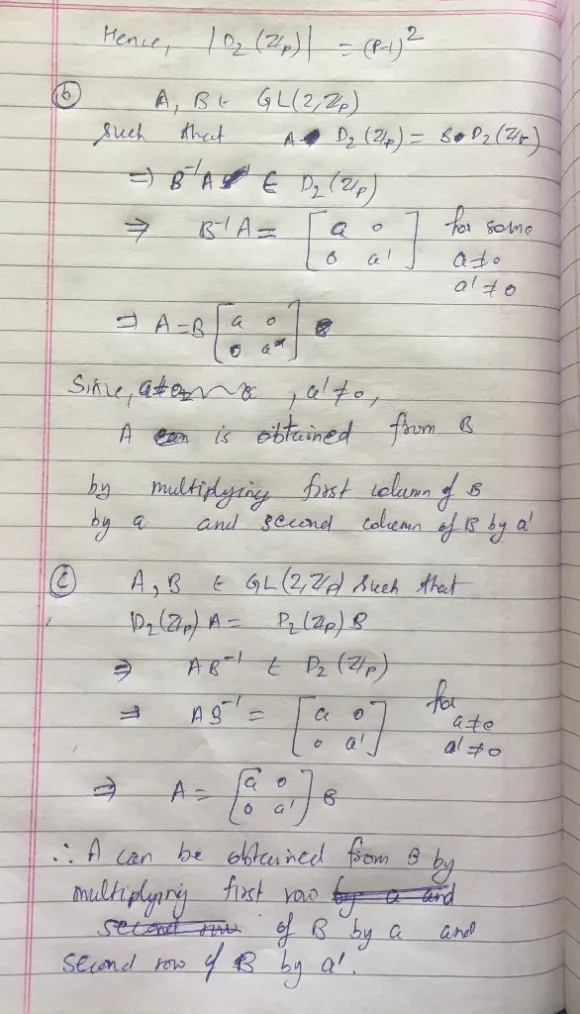 Hence, |D₂(ℤp)| = (P-1)²
ⓑ A, B ∈ GL(2,ℤp)
such that A D₂(ℤp) = B D₂(ℤp)
⇒ B⁻¹A ∈ D₂(ℤp)
⇒ B⁻¹A = [a 0 for some
0 a'] a≠0
a'≠0
⇒ A = B [a 0
0 a']
Since, , a'≠0,
A is obtained from B
by multiplying first column of B
by a and second column of B by a'
ⓒ A, B ∈ GL(2,ℤp) such that
D₂(ℤp) A = D₂(ℤp) B
⇒ AB⁻¹ ∈ D₂(ℤp)
⇒ AB⁻¹ = [a 0 for
0 a'] a≠0
a'≠0
⇒ A = [a 0
0 a'] B
∴ A can be obtained from B by
multiplying first row
of B by a and
second row of B by a'.